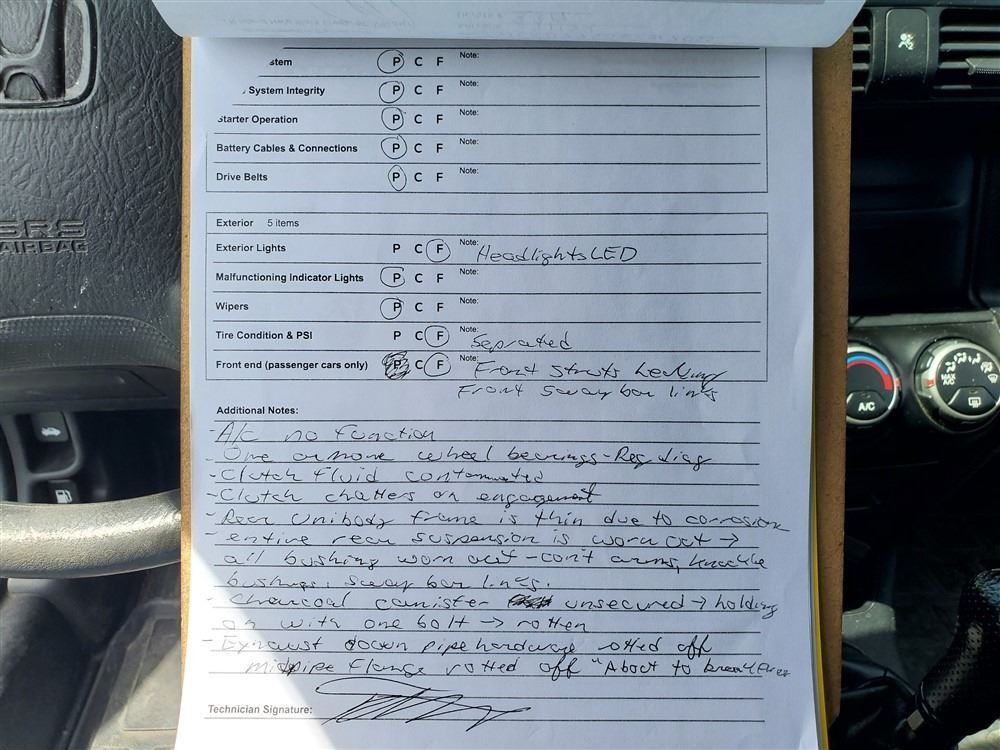 stem P C F Note:
System Integrity P C F Note:
Starter Operation P C F Note:
Battery Cables & Connections P C F Note:
Drive Belts P C F Note:
SRS
AIRBAG
Exterior 5 items
Exterior Lights P C F Note: Headlights LED
Malfunctioning Indicator Lights P C F Note:
Wipers P C F Note:
Tire Condition & PSI P C F Note: Seprated
Front end (passenger cars only) P C F Note: Front Struts Leaking
Front Sway bar links
Additional Notes:
- A/c no function
- One or more wheel bearings - Req diag
- Clutch fluid contaminated
- Clutch chatters on engagement
- Rear Unibody frame is thin due to corrosion
- entire rear suspension is worn out →
all bushing worn out - cont arms, knuckle
bushings, sway bar links.
- Charcoal canister unsecured → holding
on with one bolt → rotten
- Exhaust down pipe hardware rotted off
midpipe flange rotted off "About to break free
Technician Signature:
A/C
MAX A/C